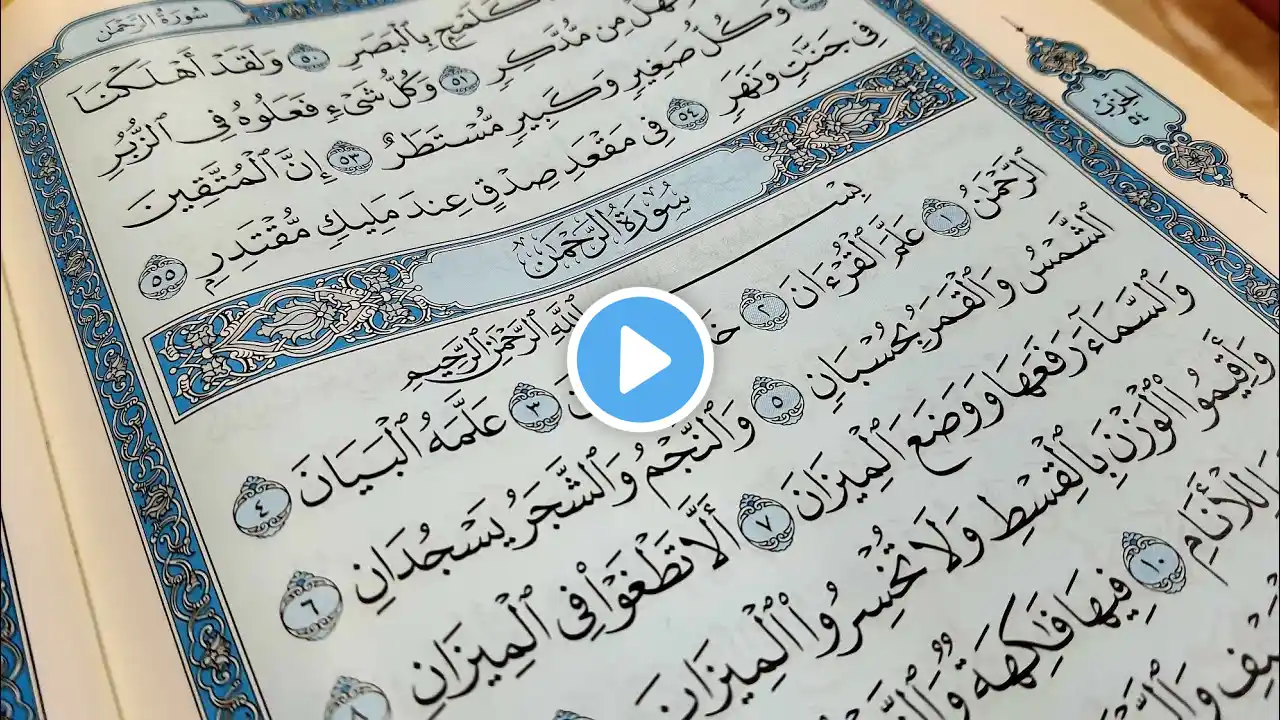 سُورَةُ الرَّحْمٰن
كَلَمْحٍ بِٱلْبَصَرِ ٥٠ وَلَقَدْ أَهْلَكْنَآ
فَهَلْ مِن مُّدَّكِرٍ ٥١ وَكُلُّ شَىْءٍ فَعَلُوهُ فِى ٱلزُّبُرِ
وَكُلُّ صَغِيرٍ وَكَبِيرٍ مُّسْتَطَرٌ ٥٣ إِنَّ ٱلْمُتَّقِينَ
فِى جَنَّٰتٍ وَنَهَرٍ ٥٤ فِى مَقْعَدِ صِدْقٍ عِندَ مَلِيكٍ مُّقْتَدِرٍۭ ٥٥
الحِزْبُ
٥٤
سُورَةُ الرَّحْمٰن
بِسْمِ ٱللَّهِ ٱلرَّحْمَٰنِ ٱلرَّحِيمِ
ٱلرَّحْمَٰنُ ١ عَلَّمَ ٱلْقُرْءَانَ ٢ ٣ عَلَّمَهُ ٱلْبَيَانَ ٤
ٱلشَّمْسُ وَٱلْقَمَرُ بِحُسْبَانٍ ٥ وَٱلنَّجْمُ وَٱلشَّجَرُ يَسْجُدَانِ ٦
وَٱلسَّمَآءَ رَفَعَهَا وَوَضَعَ ٱلْمِيزَانَ ٧ أَلَّا تَطْغَوْا۟ فِى ٱلْمِيزَانِ ٨
وَأَقِيمُوا۟ ٱلْوَزْنَ بِٱلْقِسْطِ وَلَا تُخْسِرُوا۟ ٱلْمِيزَانَ
لِلْأَنَامِ ١٠ فِيهَا فَٰكِهَةٌ